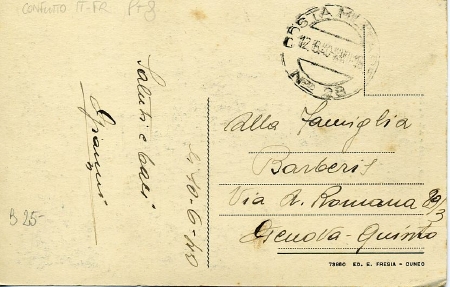 CONFLITTO IT-FR
P+g.
POSTA MILITARE
12.6.40
N° 28
Saluti e baci
Gianni
B 25-
Alla Famiglia
Barberis
Via A. Romana 29/3
Genova-Quinto
73980 ED. E. FRESIA - CUNEO